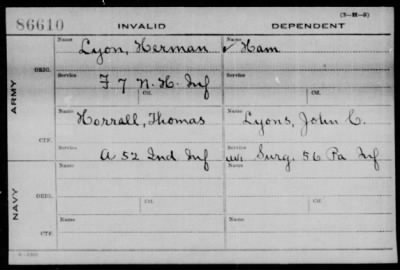 (3-H-5)
86610 INVALID DEPENDENT
Name Name
Lyon, Herman ✓ Ham
ORIG.
Service Service
F 7 N. H. Inf
Ctf. Ctf.
ARMY
Name Name
Horrall, Thomas Lyons, John C.
CTF.
Service Service
A 52 Ind Inf Surg. 56 Pa Inf
NAVY
Name Name
ORIG.
Ctf. Ctf.
Name Name
CTF.